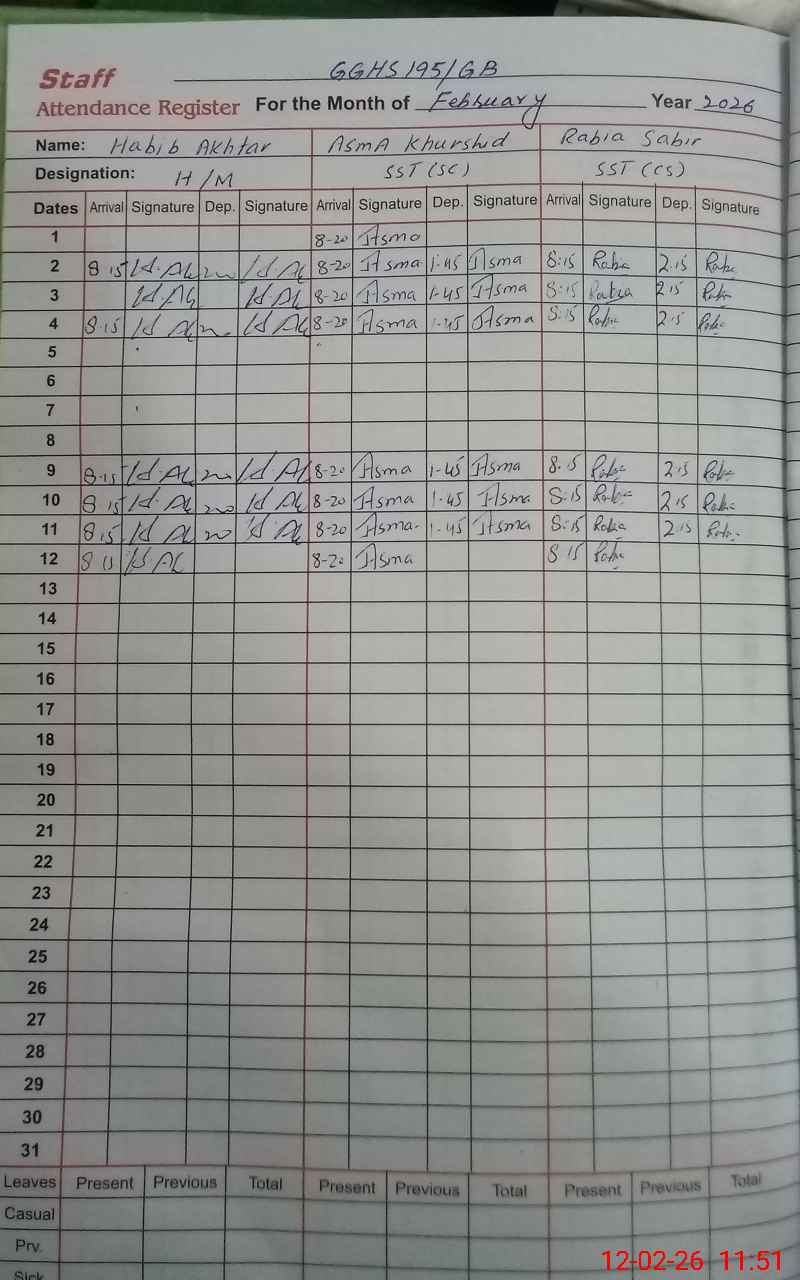 Staff GGHS 195/GB
Attendance Register For the Month of February Year 2026
Name: Habib Akhtar AsmA Khurshid Rabia Sabir
Designation: H/M SST (SC) SST (CS)
Dates Arrival Signature Dep. Signature Arrival Signature Dep. Signature Arrival Signature Dep. Signature
1 8-20 Asma
2 8 15 H.AK H.AK 8-20 Asma 1-45 Asma 8:15 Rabia 2.15 Rabia
3 H AK H AK 8-20 Asma 1-45 Asma 8:15 Rabia 2.15 Rabia
4 8.15 H AK H AK 8-20 Asma 1-45 Asma 8:15 Rabia 2.15 Rabia
5
6
7
8
9 8.15 H.AK H AK 8-20 Asma 1-45 Asma 8.15 Rabia 2.15 Rabia
10 8 15 H.AK H AK 8-20 Asma 1.45 Asma 8:15 Rabia 2.15 Rabia
11 8.15 H AK H AK 8-20 Asma 1-45 Asma 8:15 Rabia 2.15 Rabia
12 8 15 H AK 8-20 Asma 8 15 Rabia
13
14
15
16
17
18
19
20
21
22
23
24
25
26
27
28
29
30
31
Leaves Present Previous Total Present Previous Total Present Previous Total
Casual
Prv.
Sick
12-02-26 11:51